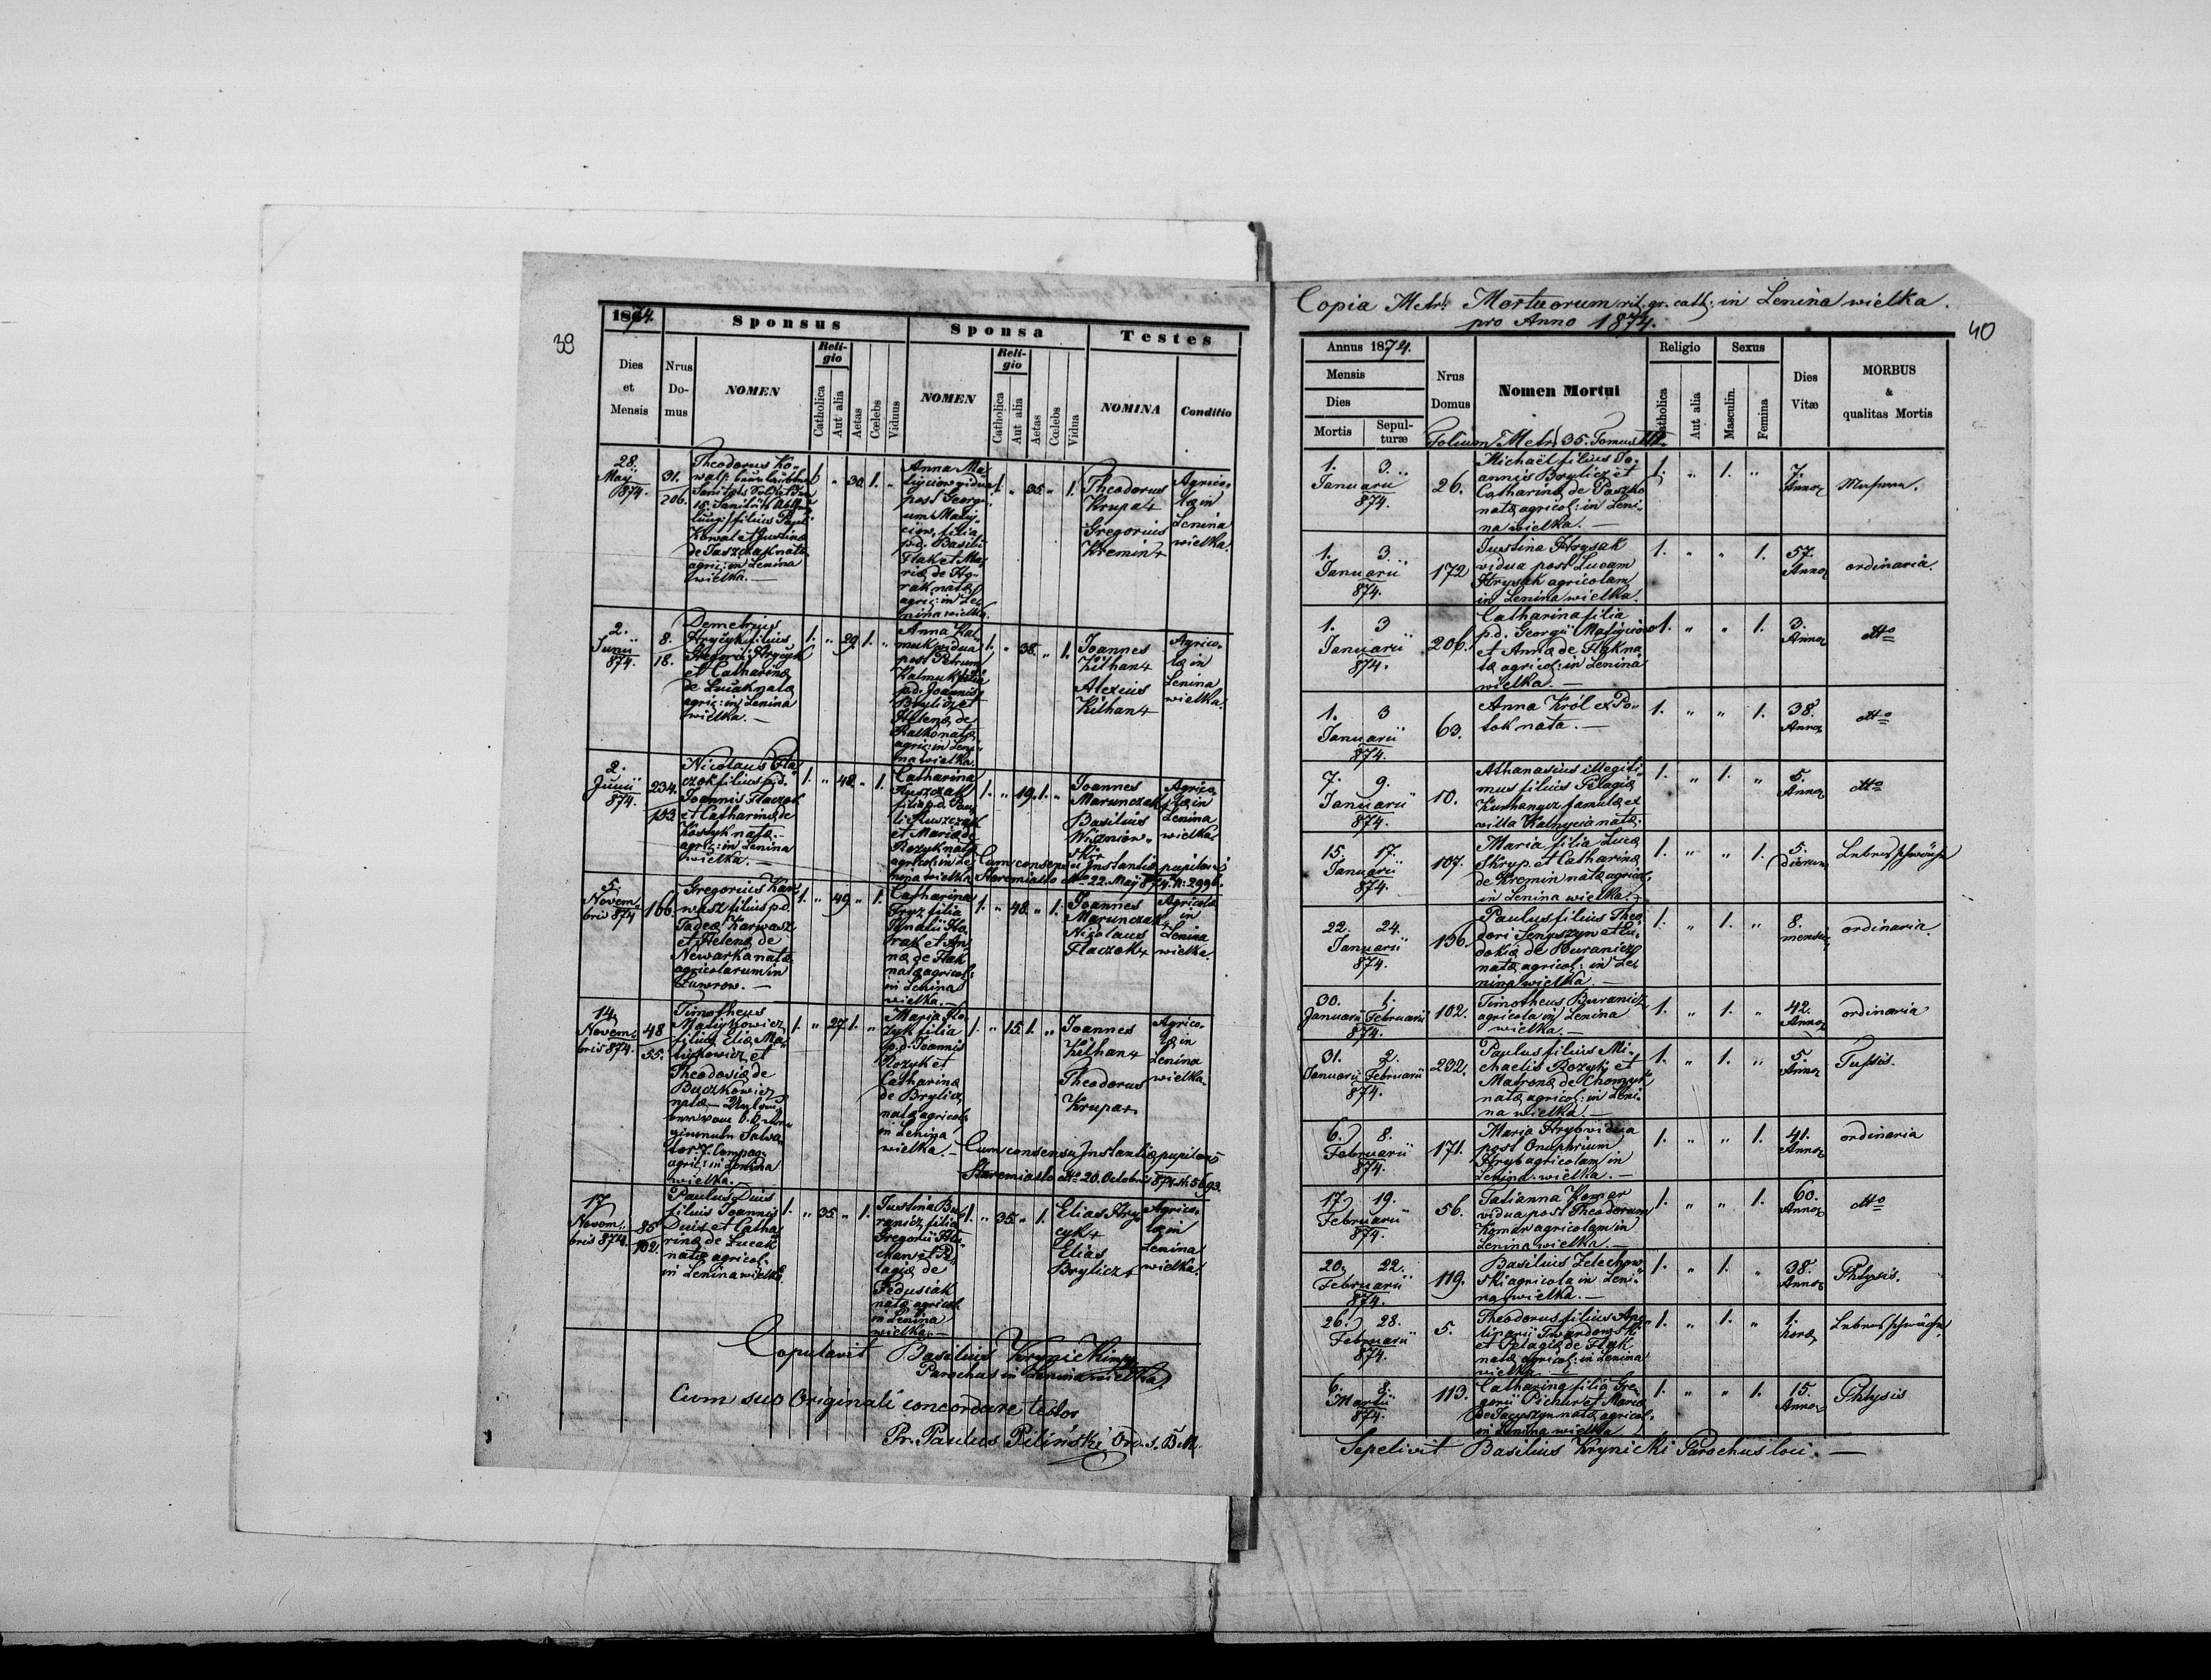 39
1874.
Sponsus
Sponsa
Testes
Dies et Mensis
Nrus Domus
NOMEN
Religio
Catholica
Aut alia
Aetas
Cœlebs
Viduus
NOMEN
Religio
Catholica
Aut alia
Aetas
Cœlebs
Vidua
NOMINA
Conditio
28.
Maÿ
874.
31.
206.
Theodorus Ko-
wal
filius Pauli
Kowal et Justinæ
de Juszczak natæ
agric: in Lenina
wielka.—
1. " 30. 1. "
Anna Ma-
vidua
post Georgi-
um
filia
p.d. Basilii
Flak et Ma-
riæ de Hry-
rak natæ
agric: in Le-
nina wielka.
1. " 35. " 1.
Theodorus
Krupa+
Gregorius
Kremin+
Agrico-
læ in
Lenina
wielka.
2.
Junii
874.
8.
18.
Demetrius
Hryćyk filius
Hryćyk
et Catharinæ
de Lućak natæ
agric: in Lenina
wielka.—
1. " 29. 1. "
Anna Kal-
muk vidua
post Petrum
Kalmuk filia
p.d. Joannis
Brylicz et
Helenæ de
natæ
agric: in Leni-
na wielka.
1. " 38. " 1.
Joannes
Kilhan+
Alexius
Kilhan+
Agrico-
læ in
Lenina
wielka.
2.
Junii
874.
234.
153
Nicolaus Fla-
czok filius p.d.
Joannis Flaczok
et Catharinæ de
Kostyk natæ.—
agric: in Lenina
wielka.—
1. " 48. " 1.
Catharina
Ruszczak
filia p.d. Pau-
li Ruszczak
et Mariæ de
Rozyk natæ
agricol: in Le-
nina wielka
1. " 19. 1. "
Joannes
Marunczak+
Basilius
Wiżniow-
ski+
Agrico-
læ in
Lenina
wielka.
Cum consensu Instantiæ pupilaris
Staremiasto dtto 22. Maÿ 874. N: 2996.
5.
Novem-
bris 874
166.
Gregorius Kar-
wasz filius p.d.
Tadeæ Karwasz
et Helenæ de
Newarka natæ
agricolarum in
Ławrow.—
1. " 49. " 1.
Catharina
Fryz filia
Ho-
rak et An-
næ de Flak
natæ agricol:
in Lenina
wielka.—
1. " 48. " 1.
Joannes
Marunczak+
Nicolaus
Flaczok+
Agricolæ
in
Lenina
wielka.
14.
Novem-
bris 874.
48
55.
Timotheus
filius Eliæ
et
Theodosiæ de
Buczkowicz
natæ
agric: in Lenina
wielka.—
1. " 27. 1. "
Maria Ro-
zyk filia
p.d. Joannis
Rozyk et
Catharinæ
de Brylicz
natæ agricol:
in Lenina
wielka.—
1. " 15. 1. "
Joannes
Kilhan+
Theodorus
Krupa+
Agrico-
læ in
Lenina
wielka.
Cum consensu Instantiæ pupilaris
Staremiasto dtto 20. Octobris 874. N. 5693.
17.
Novem-
bris 874.
85
102.
Paulus Duis
filius Joannis
Duis et Catha-
rinæ de Lucak
natæ agricol.
in Lenina wielka.
1. " 35. " 1.
Justina Bu-
ranicz, filia
Gregorii
et Pe-
lagiæ de
Fedusiak
natæ agricol:
in Lenina
wielka.—
1. " 35. " 1.
Elias Hry-
cyk+
Elias
Brylicz+
Agrico-
læ in
Lenina
wielka.
Copulavit Basilius Krynicki mp.
Parochus in Lenina wielka.
Cum suo Originali concordare testor
Pr. Paulus Piliński Ord. S. B. M.
40
Copia Metr: Mortuorum rit. gr. cath: in Lenina wielka.
pro Anno 1874.
Annus 1874.
Mensis
Dies
Mortis
Sepulturæ
Nrus Domus
Nomen Mortui
Religio
Catholica
Aut alia
Sexus
Masculin.
Femina
Dies Vitæ
MORBUS & qualitas Mortis
Folium Metr: 35. Tomus III.
1. 3.
Januarii
874.
26.
Michaël filius Jo-
annis Brylicz et
Catharinæ de Paszko
natæ agricol: in Leni-
na wielka.—
1. " 1. "
7.
Annor
1. 3
Januarii
874.
172
Justina Hrysak
vidua post Lucam
Hrysak agricolam
in Lenina wielka.
1. " " 1.
57.
Annor
ordinaria.
1. 3
Januarii
874.
206.
Catharina filia
p.d. Georgii
et Annæ de Flak na-
tæ agricol: in Lenina
wielka.—
1. " " 1.
3.
Annor
dtto
1. 3
Januarii
874.
63.
Anna Król ex Po-
tok nata.—
1. " " 1.
38.
Annor
dtto
7. 9.
Januarii
874.
10.
Athanasius illegiti-
mus filius Pelagiæ
famulæ ex
villa natæ.
1. " 1. "
5.
Annor
dtto
15. 17.
Januarii
874.
107.
Maria filia Lucæ
Skryp. et Catharinæ
de Kremin natæ agricol:
in Lenina wielka.—
1. " " 1.
5.
dierum
Lebensschwäche
22. 24.
Januarii
874.
136.
Paulus filius Theo-
dori Senyszyn et Eu-
dokiæ de Buranicz
natæ agricol: in Le-
nina wielka.—
1. " 1. "
8.
mensu
ordinaria.
30. 1.
Januarii Februarii
874.
102.
Timotheus Buranicz
agricola in Lenina
wielka.—
1. " 1. "
42.
Annor
ordinaria
31. 2.
Januarii Februarii
874.
232.
Paulus filius Mi-
chaelis Rozyk et
Matronæ de Chomyk
natæ agricol: in Leni-
na wielka.—
1. " 1. "
5.
Annor
Tussis.
6. 8.
Februarii
874.
171.
Maria Hryb vidua
post Onuphrium
Hryb agricolam in
Lenina wielka.—
1. " " 1.
41.
Annor
ordinaria
17. 19.
Februarii
874.
56.
Tatianna Komar
vidua post Theodorum
Komar agricolam in
Lenina wielka.—
1. " " 1.
60.
Annor
dtto
20. 22.
Februarii
874.
119.
Basilius Zelechow-
ski agricola in Leni-
na wielka.—
1. " 1. "
38.
Annor
Phtysis.
26. 28.
Februarii
874.
5.
Theodorus filius Apo-
linarii Twardowski
et Pelagiæ de Flak
natæ agricol: in Lenina
wielka.—
1. " 1. "
1.
horæ
Lebensschwäche
6. 8.
Martii
874.
113.
Catharina filia Gre-
gorii Pichur et Mariæ
de natæ agricol.
in Lenina wielka
1. " " 1.
15.
Annor
Phtysis
Sepelivit Basilius Krynicki Parochus loci.—